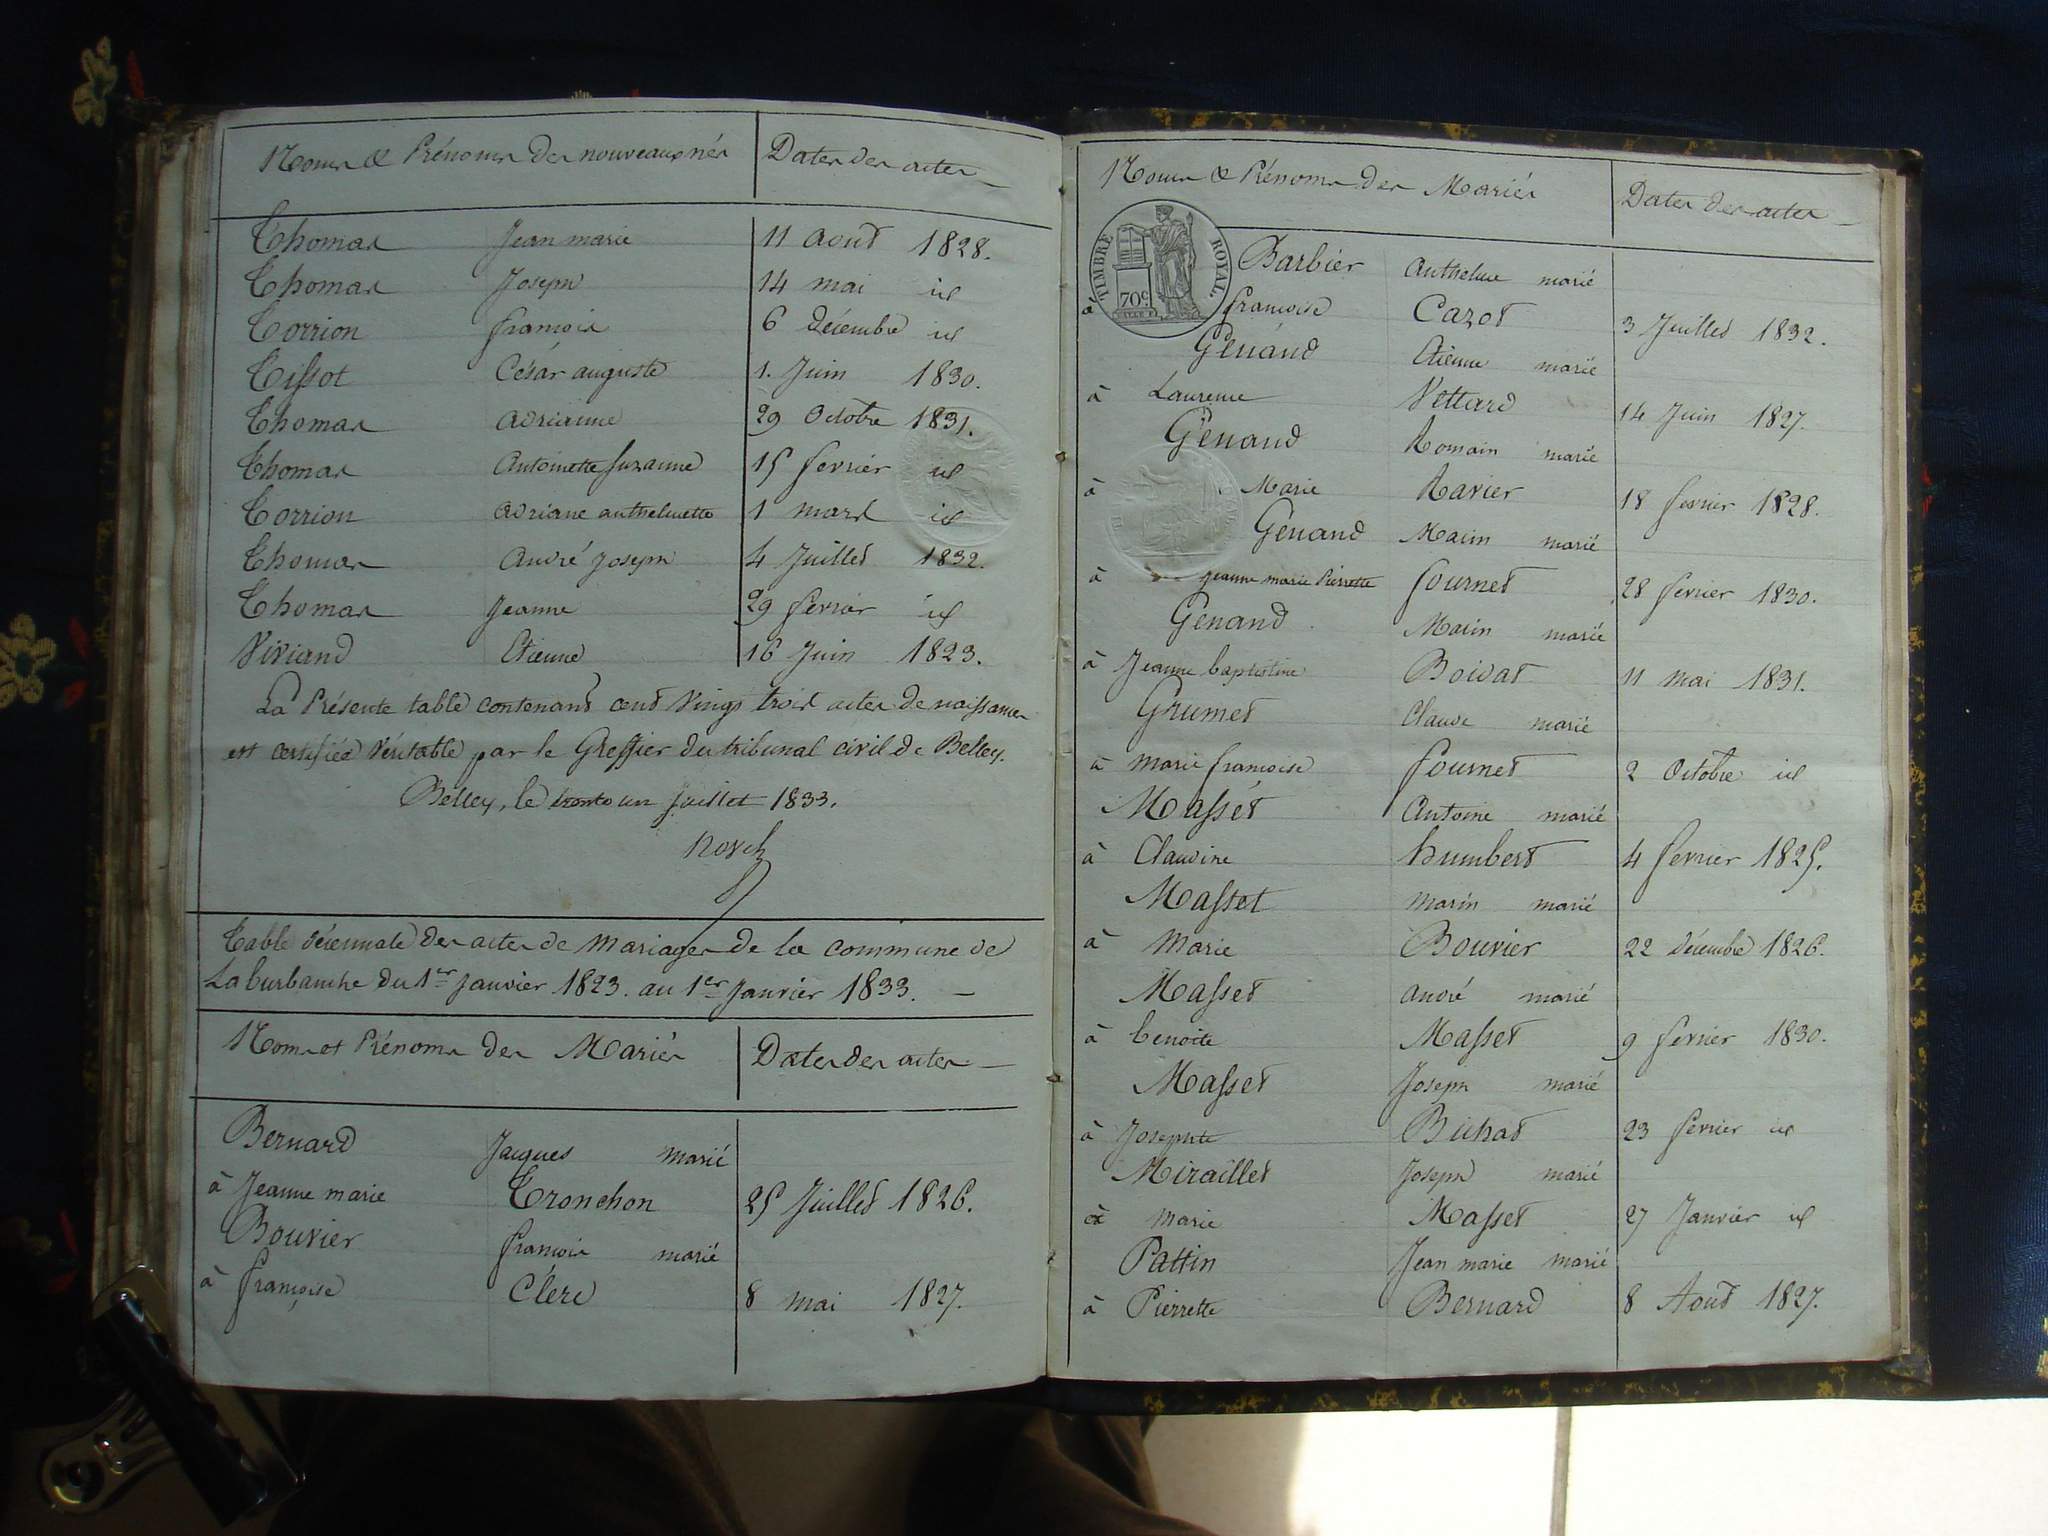 Noms & Prénoms des nouveaux nés Dates des actes
Thomas Jean marie 11 Aout 1828.
Thomas Joseph 14 mai id
Torrion françois 6 Décembre id
Tissot César auguste 1. Juin 1830.
Thomas Adrianne 29 Octobre 1831.
Thomas Antoinette Suzanne 15 fevrier id
Torrion Adriane anthelmette 1 mars id
Thomas André Joseph 4 Juillet 1832.
Thomas Jeanne 29 fevrier id
Viviand Etienne 16 Juin 1823.
La Présente table contenant cent Vingt trois actes de naissances
est certifiée Véritable par le Greffier du tribunal civil de Belley.
Belley, le trente un Juillet 1833.
Table décennale des actes de Mariages de la commune de
La burbanche du 1er Janvier 1823. au 1er Janvier 1833.
Noms et Prénoms des Mariés Dates des actes
Bernard Jacques marié
à Jeanne marie Tronchon 25 Juillet 1826.
Bouvier françois marié
à françoise Clerc 8 mai 1827.
Noms & Prénoms des Mariés Dates des actes
TIMBRE ROYAL.
70c
Barbier Anthelme marié
à françoise Cazot 3 Juillet 1832.
Génand Etienne marié
à Laurence Vettard 14 Juin 1827.
Génand Romain marié
à Marie Ravier 18 fevrier 1828.
Génand Marin marié
à Jeanne marie Pierrette fournet 28 fevrier 1830.
Génand Marin marié
à Jeanne baptistine Boidat 11 mai 1831.
Grumet Claude marié
à marie françoise fournet 2 Octobre id
Masset Antoine marié
à Claudine humbert 4 fevrier 1825.
Masset marin marié
à marie Bouvier 22 Décembre 1826.
Masset André marié
à benoite Masset 9 fevrier 1830.
Masset Joseph marié
à Josephte Bichat 23 fevrier id
Miraillet Joseph marié
à marie Masset 27 Janvier id
Pattin Jean marie marié
à Pierrette Bernard 8 Aout 1827.